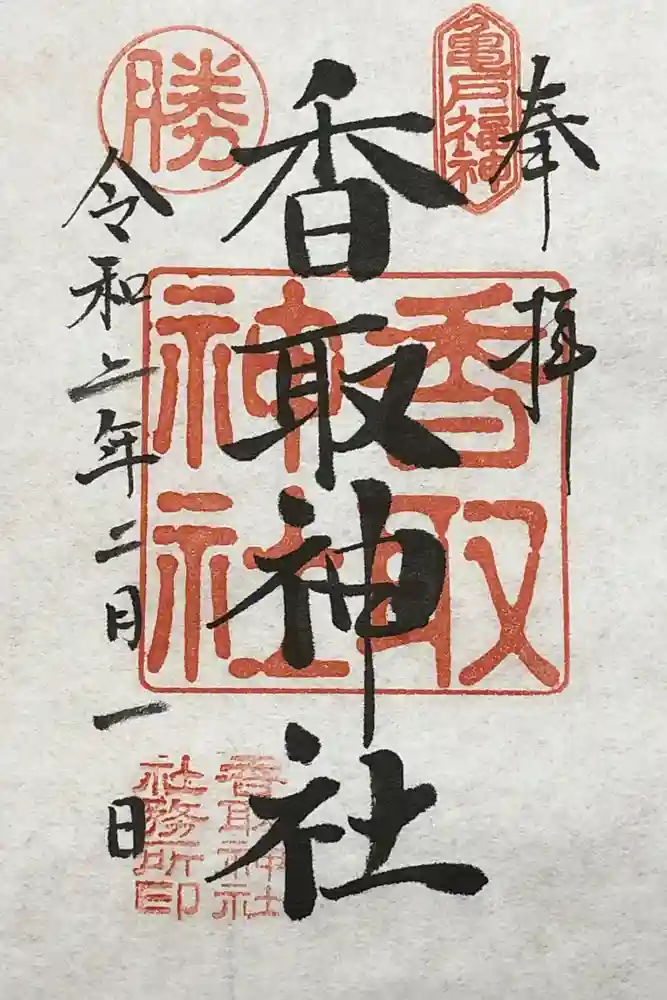 奉拝
亀戸福神
香取神社
香取
神社
勝
令和二年二月一日
香取神社
社務所印